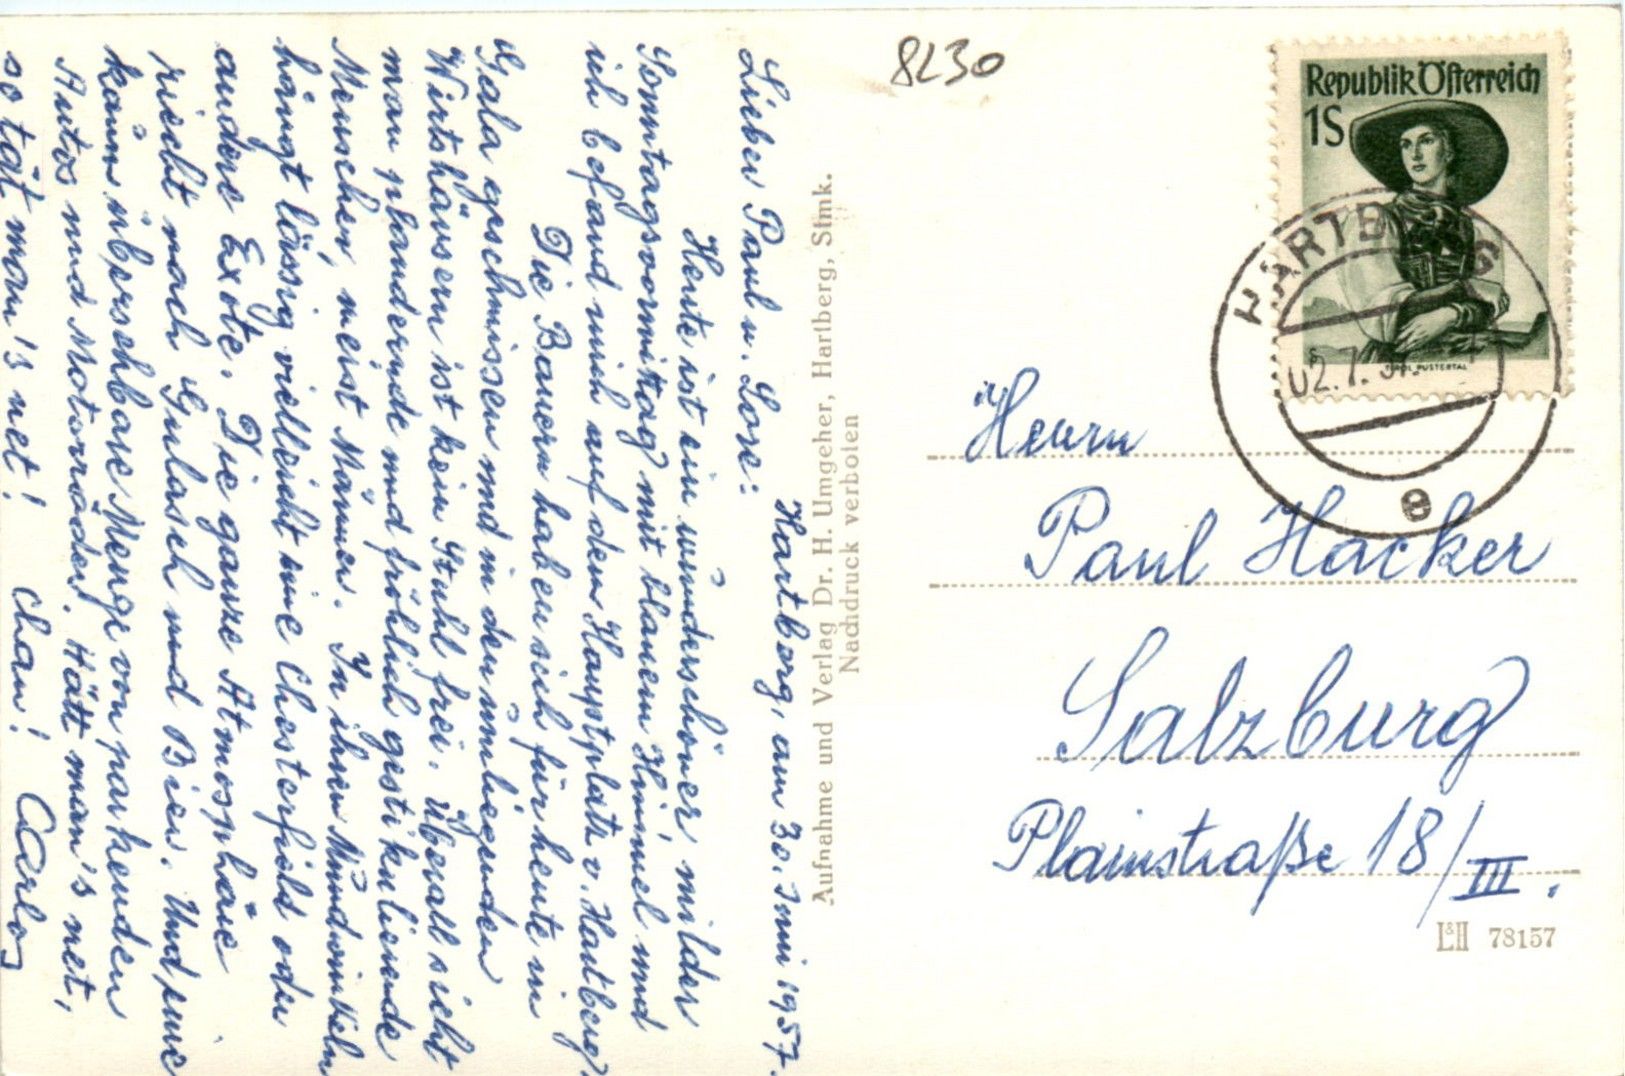 Hartberg, am 30. Juni 1957.
Lieber Paul u. Lore:
Heute ist ein wunderschöner milder
Sonntagsvormittag mit blauem Himmel und
ich befand mich auf dem Hauptplatz v. Hartberg
Die Bauern haben sich für heute in
Gala geschmissen und in den umliegenden
Wirtshäusern ist kein Stuhl frei. Überall sieht
man plaudernde und fröhlich gestikulierende
Menschen, meist Männer. In ihren Mundwinkeln
hängt lässig vielleicht eine Chesterfield oder
andere Exote. Die ganze Atmosphäre
riecht nach Gulasch und Bier. Und eine
kaum übersehbare Menge von parkenden
Autos und Motorräder. Hätt man's net,
so tät man's net! Ciao! Carlos
Aufnahme und Verlag Dr. H. Umgeher, Hartberg, Stmk.
Nachdruck verboten
8230
Republik Österreich
1S
TIROL, PUSTERTAL
HARTBERG
02.7.57
e
Herrn
Paul Hacker
Salzburg
Plainstraße 18/III.
L&H 78157